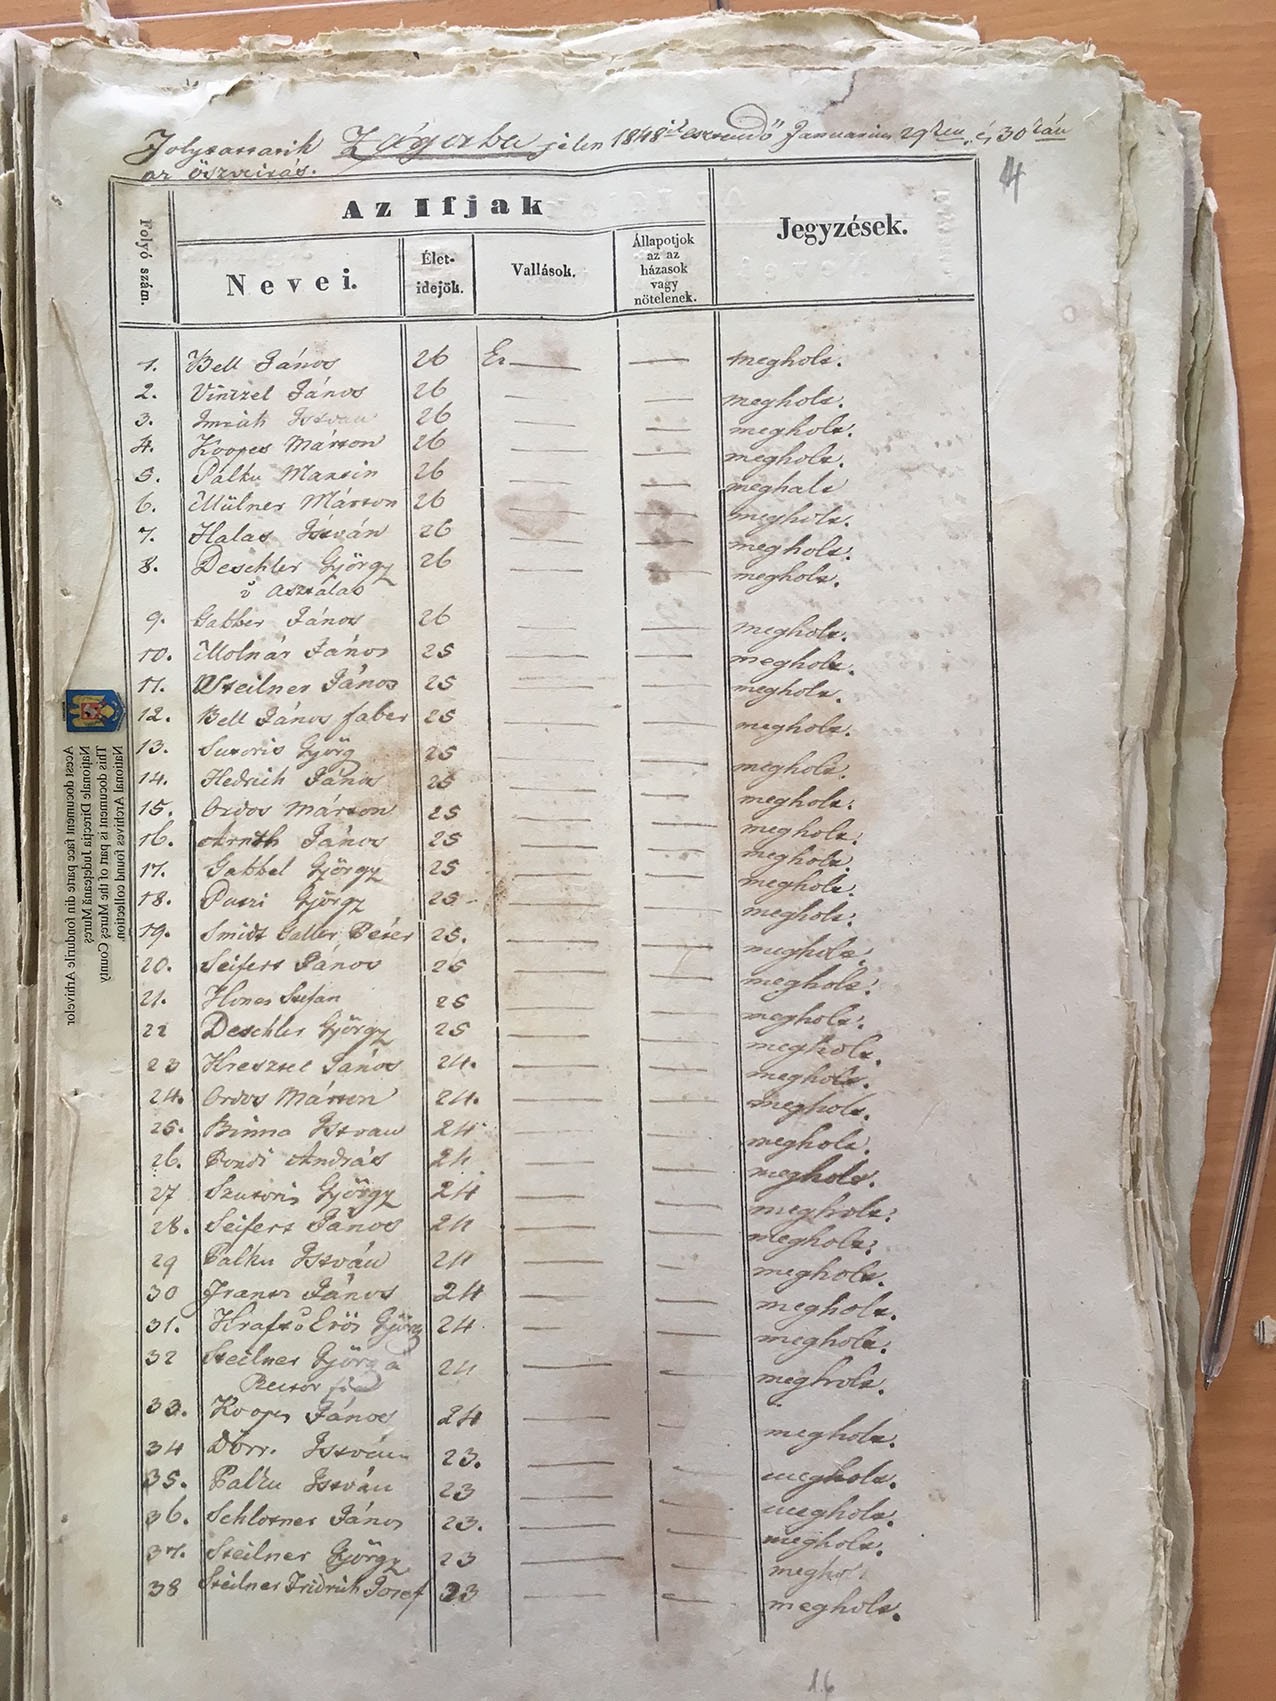 Folytattatik Zágorba jelen 1848 ik esztendő Januarius 29dén és 30dikán
az öszveirás.
4
Folyó szám.
Az Ifjak
Jegyzések.
Nevei.
Élet-
idejök.
Vallások.
Állapotjok
az az
házasok
vagy
nötelenek.
1. Bell János 26 Ev — — megholt.
2. Vintzel János 26 — — megholt.
3. Imrich Istvan 26 — — megholt.
4. Koopes Márton 26 — — megholt.
5. Palku Martin 26 — — meghalt
6. Müllner Márton 26 — — megholt.
7. Halas István 26 — — megholt.
8. Deschler György 26 — — megholt.
v Asztalas
9. Gabber János 26 — — megholt.
10. Molnár János 25 — — megholt.
11. Steilner János 25 — — megholt.
12. Bell János faber 25 — — megholt.
13. Sutoris Györg 25 — — megholt.
14. Hedrich János 25 — — megholt.
15. Ordos Márton 25 — — megholt.
16. Arnth János 25 — — megholt.
17. Gabbel György 25 — — megholt.
18. Putzi György 25 — — megholt.
19. Smidt Galter Péter 25. — — megholt.
20. Seifert János 25 — — megholt.
21. Hones Stefan 25 — — megholt.
22 Deschler György 25 — — megholt.
23 Hresztel János 24. — — megholt.
24. Ordos Márten 24. — — megholt.
25. Binna Istvan 24 — — megholt.
26. Bondi András 24 — — megholt.
27 Szutoris György 24 — — megholt.
28. Seifert János 24 — — megholt.
29 Palku István 24 — — megholt.
30 Frantz János 24 — — megholt.
31. Kraft v Erös György 24 — — megholt.
32 Steilner György a 24 — — megholt.
Rector
33. Koopes János 24 — — megholt.
34 Dörr. István 23. — — megholt.
35. Palku István 23 — — megholt.
36. Schlosner János 23. — — megholt.
37. Steilner György 23 — — megho
38 Steilner Fridrich Josef 23 — — megholt.
Acest document face parte din fondurile Arhivelor
Naționale Direcția Județeană Mureș
This document is part of the Mures County
National Archives fond collection.
16